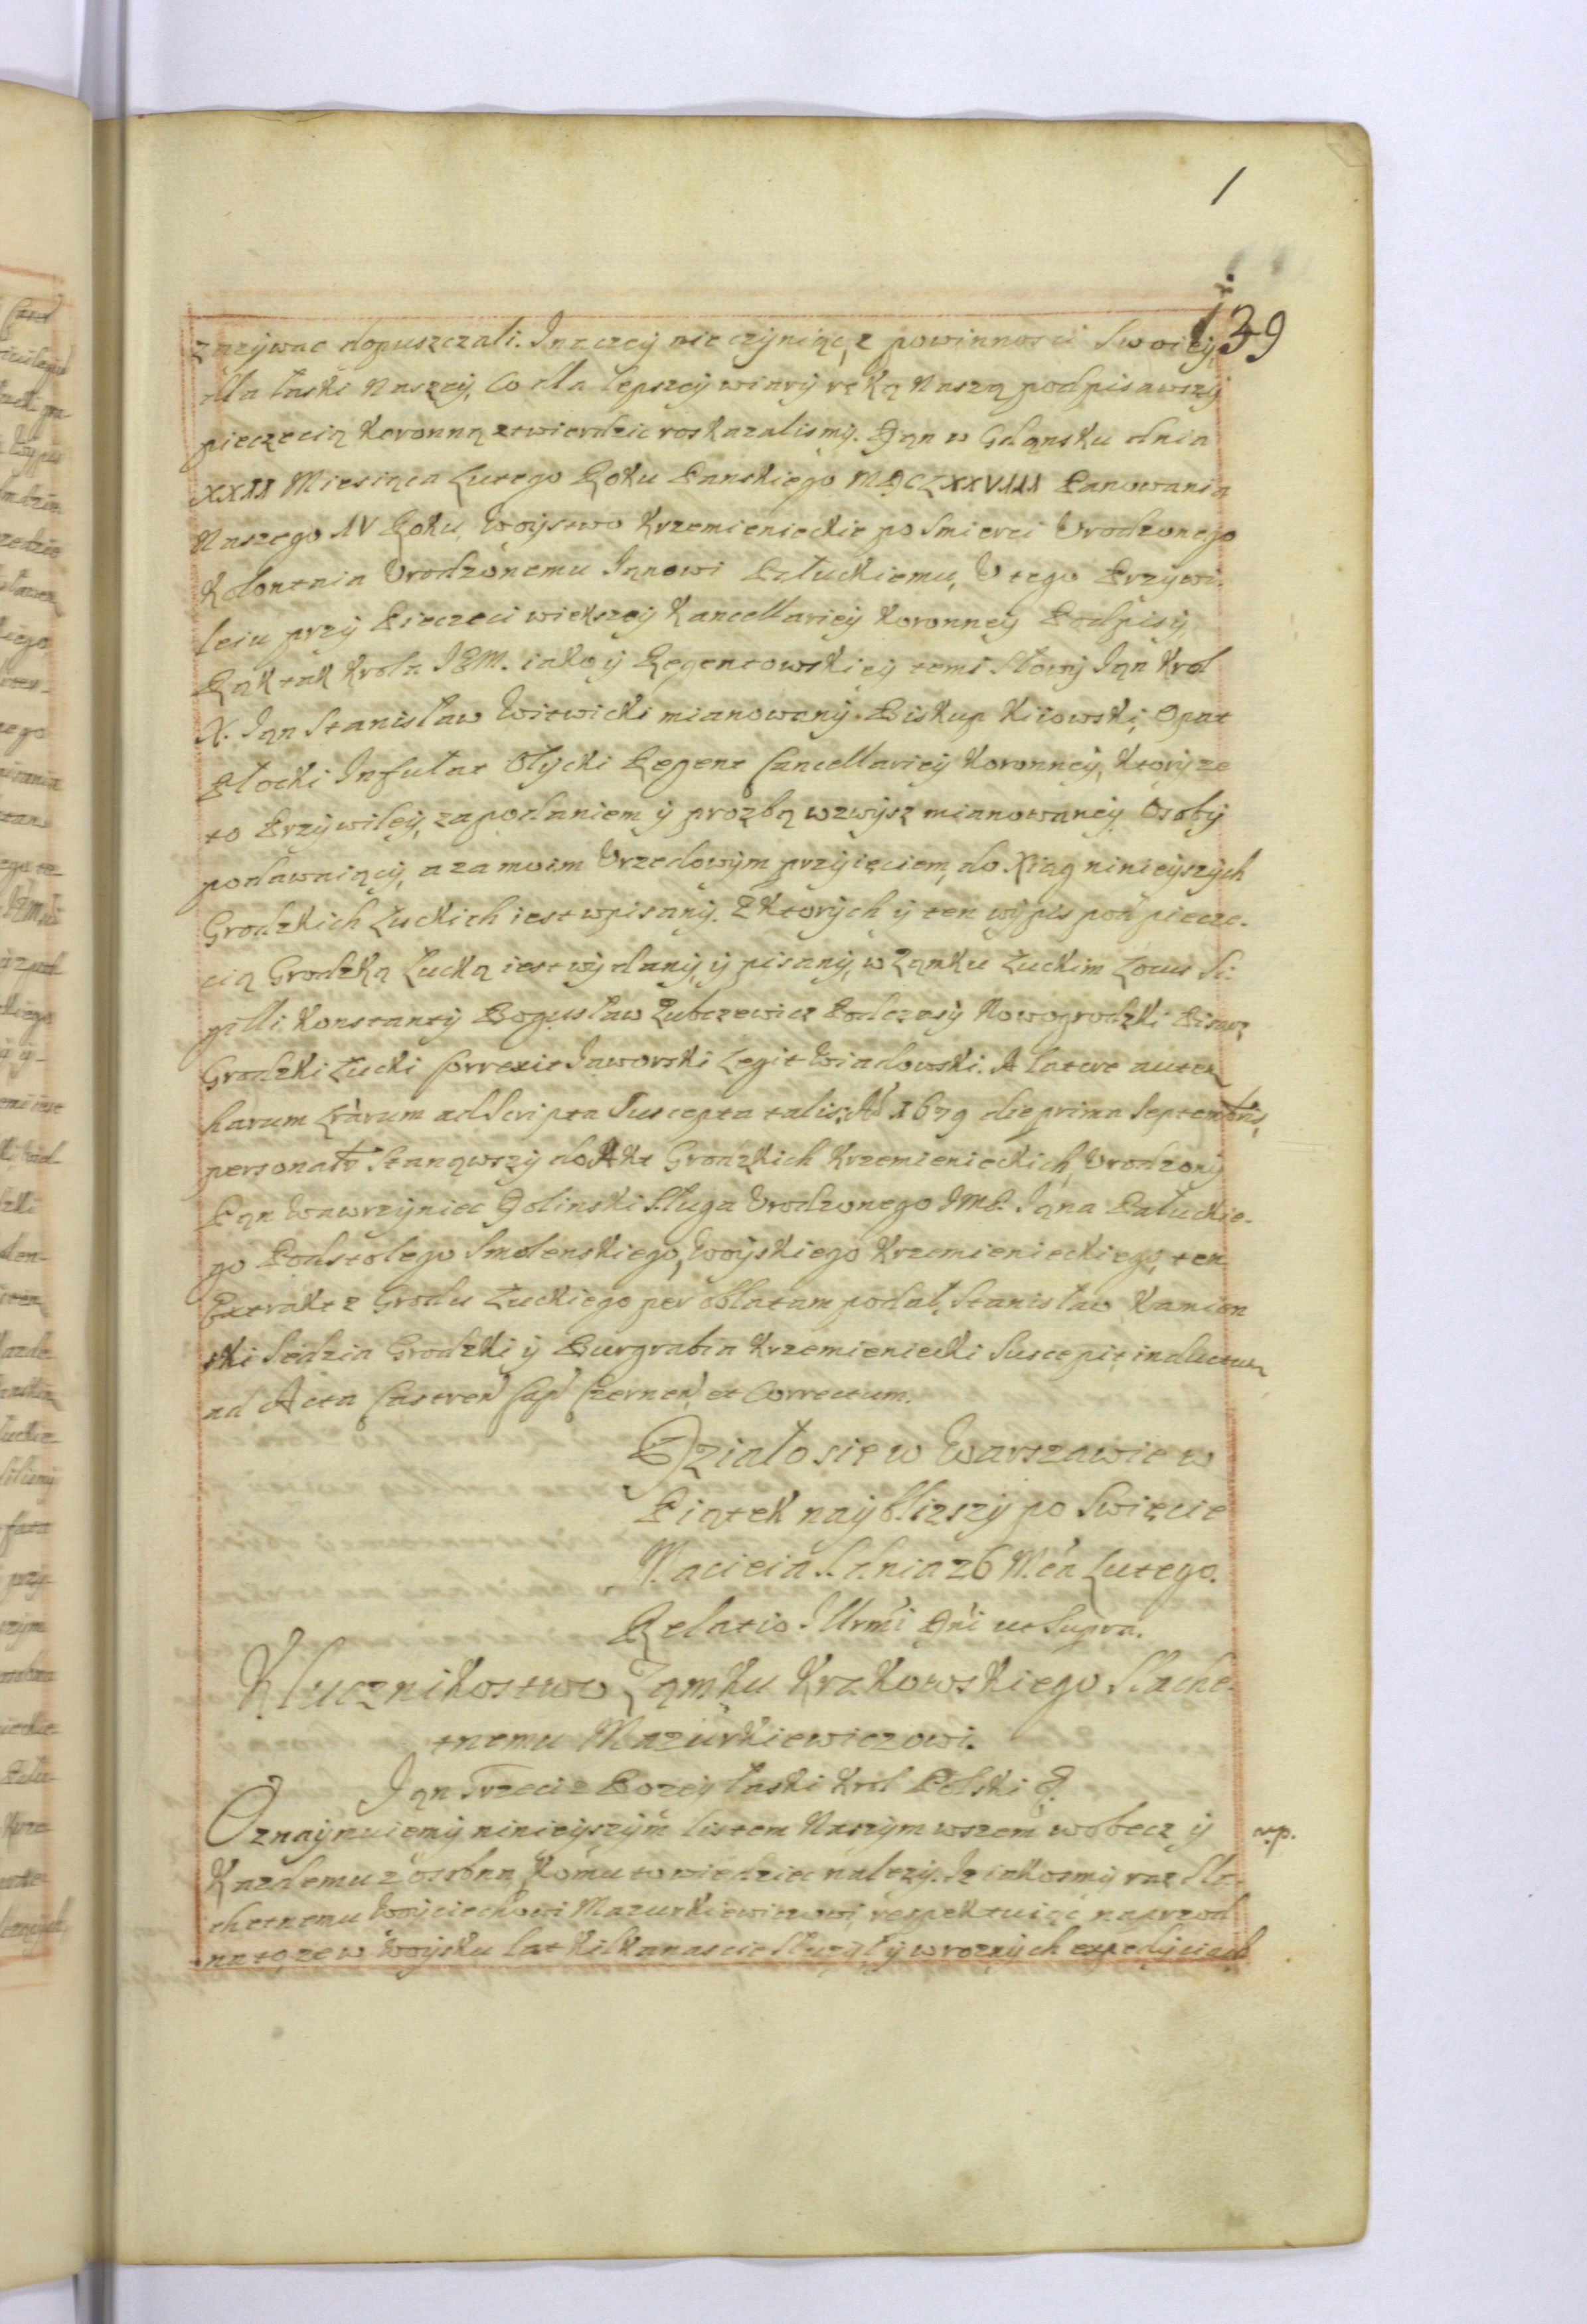 1
139
zazywac dopuszczali. Inaczey nie czyniąc, z powinnosci Swoiey,
dla łaski Naszey, Co dla lepszey wiary ręką Naszą podpisawszy
pieczęcią Koronną ztwierdzic roskazalismy. Dan w Gdansku dnia
XXII Miesiąca Lutego Roku Panskiego MDCLXXVIII Panowania
Naszego IV Roku, Woystwo Krzemienieckie po Smierci Urodzonego
Kolontaia Urodzonemu Janowi Pałuckiemu, U tego Przywi-
leiu przy Pieczeci wiekszey Kancellariey Koronney Podpisy,
Rąk tak Krola JEM. iako y Regentowskiey temi Słowy Jan Krol
X. Jan Stanisław Witwicki mianowany Biskup Kiiowski, Opat
Płocki Infułat Ołycki Regent Cancellariey Koronney, Ktory ze
to Przywiley, za podaniem y prozbą wzwysz mianowaney Osoby
podawaiący, a za moim Urzedowym przyięciem, do Xiąg ninieyszych
Grodzkich Łuckich iest wpisany. Z Ktorych y ten wypis pod pieczę-
cią Grodzką Łucką iest wydany, y pisany, w Zamku Łuckim Locus Si-
gilli. Konstanty Bogusław Zubczewicz Podczaszy Nowogrodzki Pisarz
Grodzki Łucki Correxit Jaworski Legit Wiadowski. A latere autem
harum Lrarum ad Scripta Suscepta talis; Ao 1679 die prima Septembris,
personalr Stanąwszy do Akt Grodzkich Krzemienieckich, Urodzony
Pan Wawrzyniec Dolinski Sługa Urodzonego JMP. Jana Pałuckie-
go Podstolego Smolenskiego, Woyskiego Krzemienieckiego, ten
Extrakt z Grodu Łuckiego per oblatam podał, Stanisław Kamien
ski Sędzia Grodzki y Burgrabia Krzemieniecki Suscepit, inductum
ad Acta Castren Cap Czernen, et Correctum.
Działo sie w Warszawie w
Piątek nayblizszy po Swięcie
Macieia S. dnia 26 Mca Lutego.
Relatio Illrmi Dni ut Supra.
Klucznikostwo Zamku Krakowskiego Slache-
tnemu Mazurkiewiczowi.
Jan Trzeci z Bozey łaski Krol Polski &.
Oznaymuiemy ninieyszym listem Naszym wszem wobecz y
np.
Kazdemu z osobna, Komu to wiedziec nalezy. Iz iakosmy raz Sla-
chetnemu Woyciechowi Mazurkiewiczowi, respektuiąc naprzod
na to ze w Woysku lat Kilkanascie Słuzył, y w roznych expedyciach